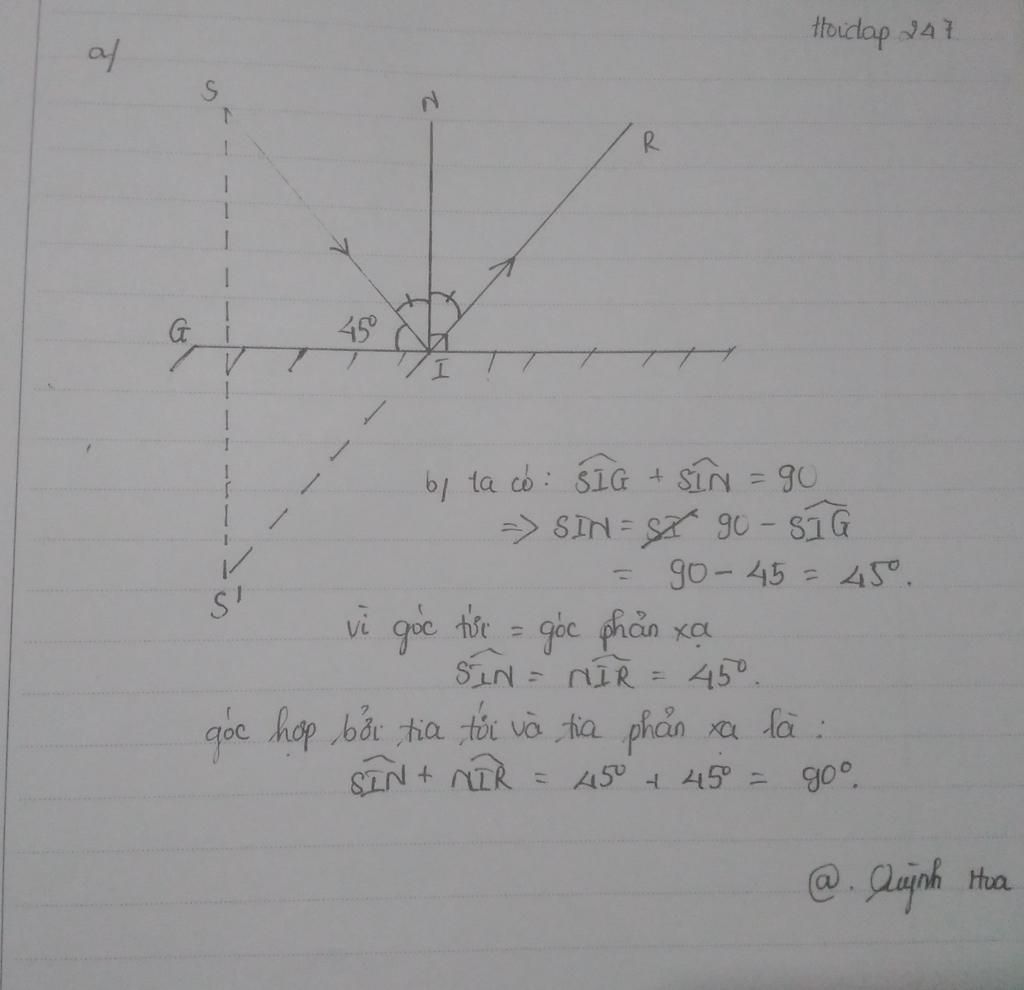 Hoidap 247
a/
S
N
R
G
45°
I
S'
b, ta có: SIG + SIN = 90
=> SIN = SI 90 - SIG
= 90 - 45 = 45°.
vì góc tới = góc phản xạ
SIN = NIR = 45°.
góc hợp bởi tia tới và tia phản xạ là:
SIN + NIR = 45° + 45° = 90°.
@. Quỳnh Hoa